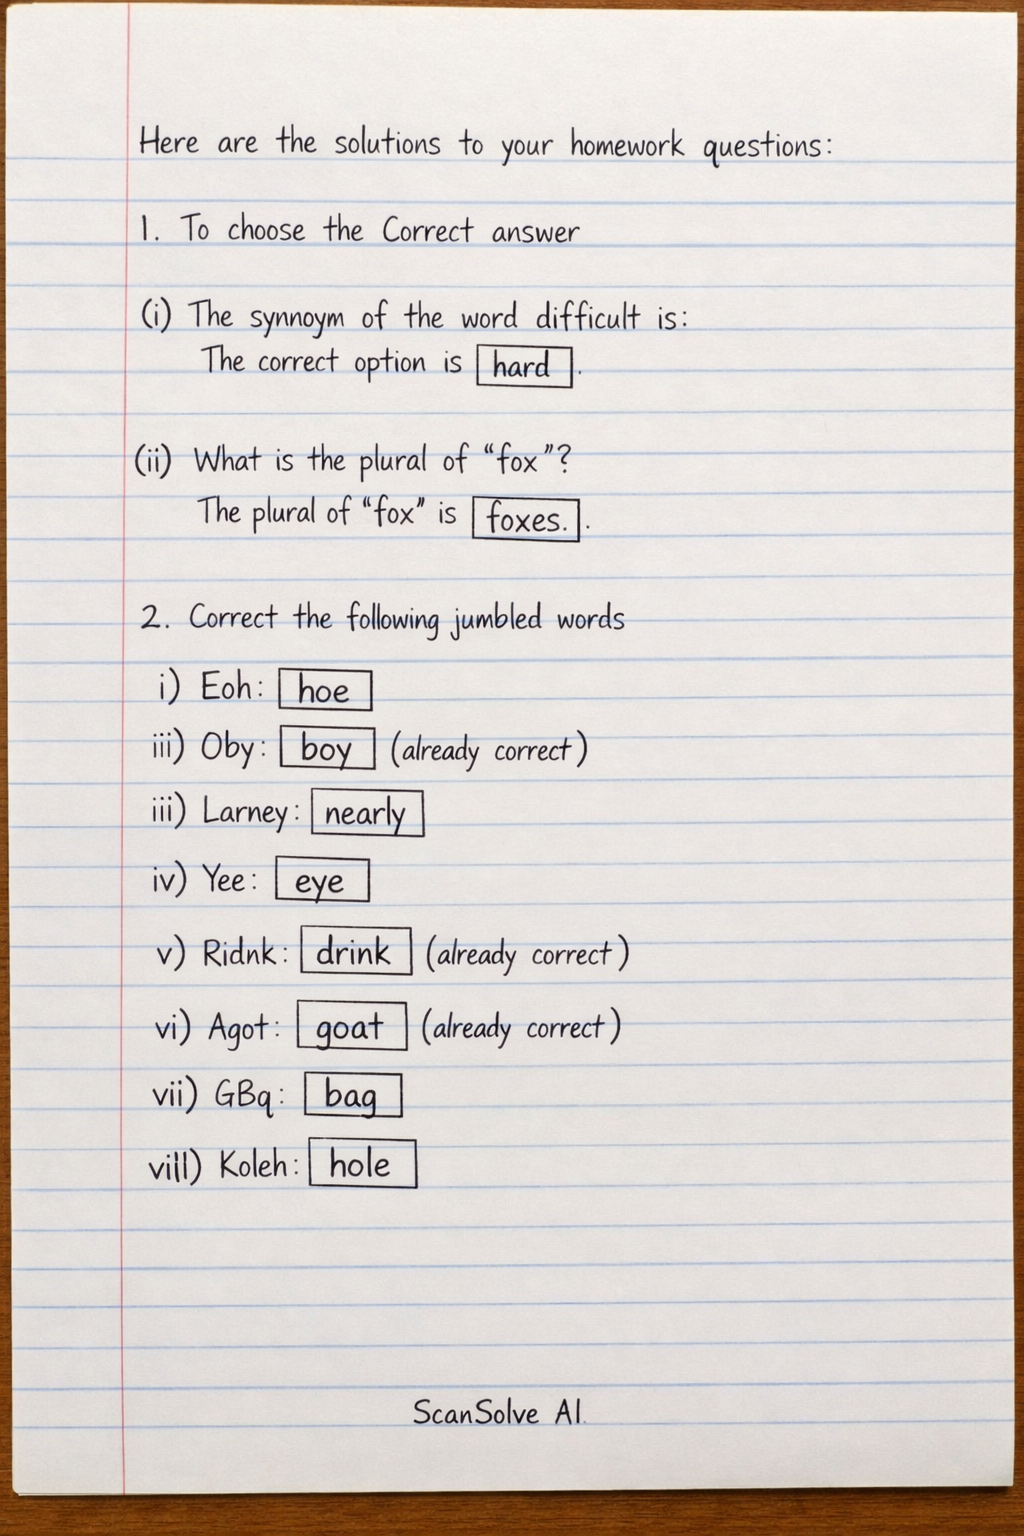 Here are the solutions to your homework questions:
1. To choose the Correct answer
(i) The synnoym of the word difficult is:
The correct option is hard.
(ii) What is the plural of “fox”?
The plural of “fox” is foxes..
2. Correct the following jumbled words
i) Eoh: hoe
iii) Oby: boy (already correct)
iii) Larney: nearly
iv) Yee: eye
v) Ridnk: drink (already correct)
vi) Agot: goat (already correct)
vii) GBq: bag
vill) Koleh: hole
ScanSolve AI